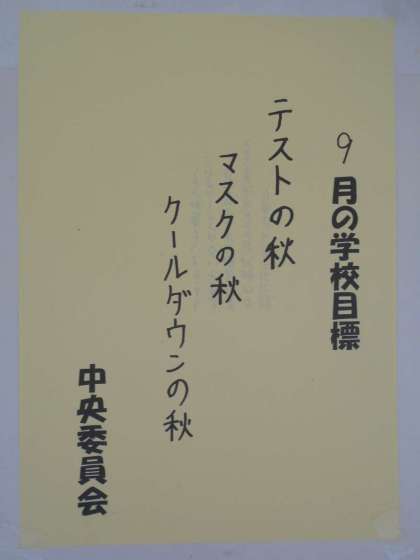 9月の学校目標
テストの秋
マスクの秋
クールダウンの秋
中央委員会